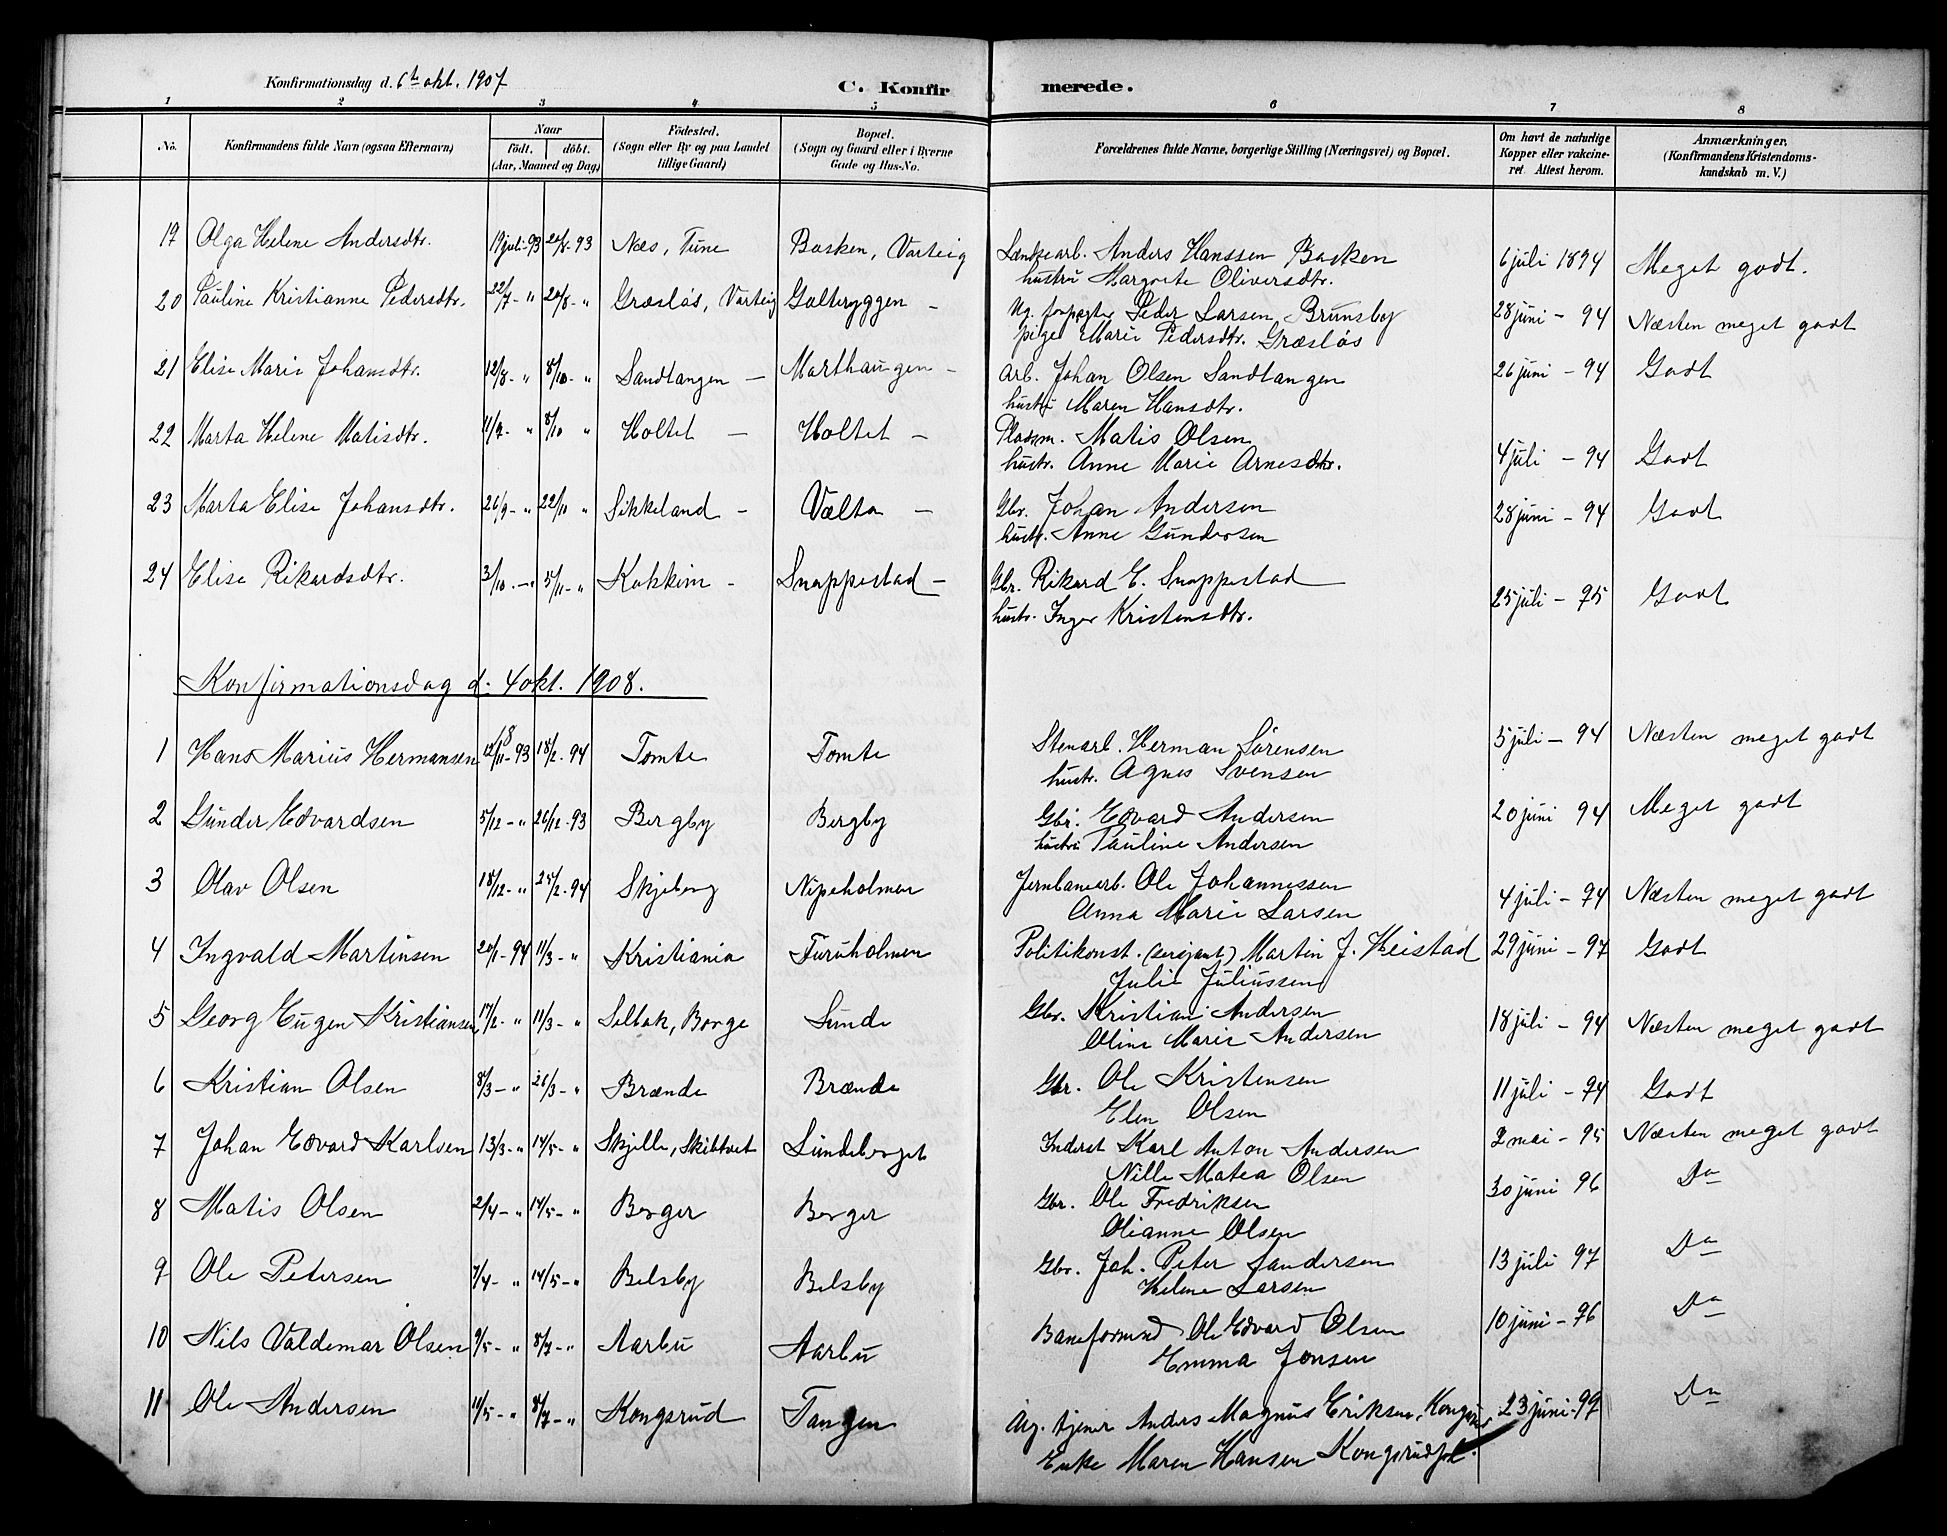 Konfirmationsdag d. 6te okt. 1907
C. Konfirmerede.
1 2 3 4 5 6 7 8
No. Konfirmandens fulde Navn (ogsaa Efternavn) Naar födt. döbt. (Aar, Maaned og Dag) Födested. (Sogn eller By og paa Landet tillige Gaard) Bopæl. (Sogn og Gaard eller i Byerne Gade og Hus-No. Forældrenes fulde Navne, borgerlige Stilling (Næringsvei) og Bopæl. Om havt de naturlige Kopper eller vakcineret Attest herom. Anmærkninger. (Konfirmandens Kristendomskundskab m. V.)
19 Olga Helene Andersdtr. 19 juli-93 20/8-93 Næs, Tune Basken, Varteig Landsearb. Anders Hanssen Basken 6 juli 1894 Meget godt.
hustru Margrete Oliversdtr.
20 Pauline Kristianne Pedersdtr. 22/7-" 20/8-" Græsløs, Varteig Galteryggen - Ug. forpagter Peder Larsen Brunsby 28 juni - 94 Næsten meget godt
pige Marie Pedersdtr. Græsløs
21 Elise Marie Johansdtr. 12/8-" 8/10-" Sandtangen - Marthaugen - Arb. Johan Olsen Sandtangen 26 juni - 94 Godt
hustru Maren Hansdtr.
22 Marta Helene Matisdtr. 11/9-" 8/10 " Holtet - Holtet - Pladsm. Matis Olsen 4 juli - 94 Godt
hustr. Anne Marie Arnesdtr.
23 Marta Elise Johansdtr. 26/9-" 22/10 " Sikkeland - Vælta - Gbr. Johan Andersen 28 juni - 94 Godt
hustr. Anne Gundersen
24 Elise Rikardsdtr. 3/10.-" 5/11-" Kokkim - Snappestad - Gbr. Rikard E. Snappestad 25 juli - 95 Godt
hustr. Inger Kristensdtr.
Konfirmationsdag d. 4 okt. 1908.
1 Hans Marius Hermansen 12/11-93 18/2-94 Tomte Tomte Stenarb. Herman Sørensen 5 juli - 94 Næsten meget godt
hustr. Agnes Svensen
2 Gunder Edvardsen 5/12-" 26/12-93 Bergby Bergby Gbr. Edvard Andersen 20 juni 94 Meget godt
hustru Pauline Andersen
3 Olav Olsen 18/12-" 25/2-94 Skjeberg Nipeholmen Jernbanearb. Ole Johannessen 4 juli - 94 Næsten meget godt
Anna Marie Larsen
4 Ingvald Martinsen 20/1-94 11/3-" Kristiania Furuholmen Politikonst. (sersjant) Martin J. Heistad 29 juni - 97 Godt
Julie Juliussen
5 Georg Eugen Kristiansen 17/2-" 11/3-" Selbak, Borge Sunde Gbr. Kristian Andersen 18 juli - 94 Næsten meget godt
Oline Marie Andersen
6 Kristian Olsen 8/3-" 26/3-" Brænde Brænde Gbr. Ole Kristensen 11 juli - 94 Godt
Elen Olsen
7 Johan Edvard Karlsen 13/3-" 14/5-" Skjelle, Skibtvet Lundeberget Inderst Karl Anton Andersen 2 mai - 95 Næsten meget godt
Nille Matea Olsen
8 Matis Olsen 2/4-" 14/5-" Berger Berger Gbr. Ole Fredriksen 30 juni 96 Do
Olianne Olsen
9 Ole Petersen 7/4-" 14/5-" Belsby Belsby Gbr. Joh. Peter Sandersen 13 juli 97 Do
Helene Larsen
10 Nils Valdemar Olsen 9/5-" 8/7-" Aarbu Aarbu Baneformand Ole Edvard Olsen 10 juni - 96 Do
Emma Jonsen
11 Ole Andersen 10/5-" 8/7-" Kongsrud Tangen tjener Anders Magnus Eriksen, 23 juni - 99 Do
Enke Maren Hansen